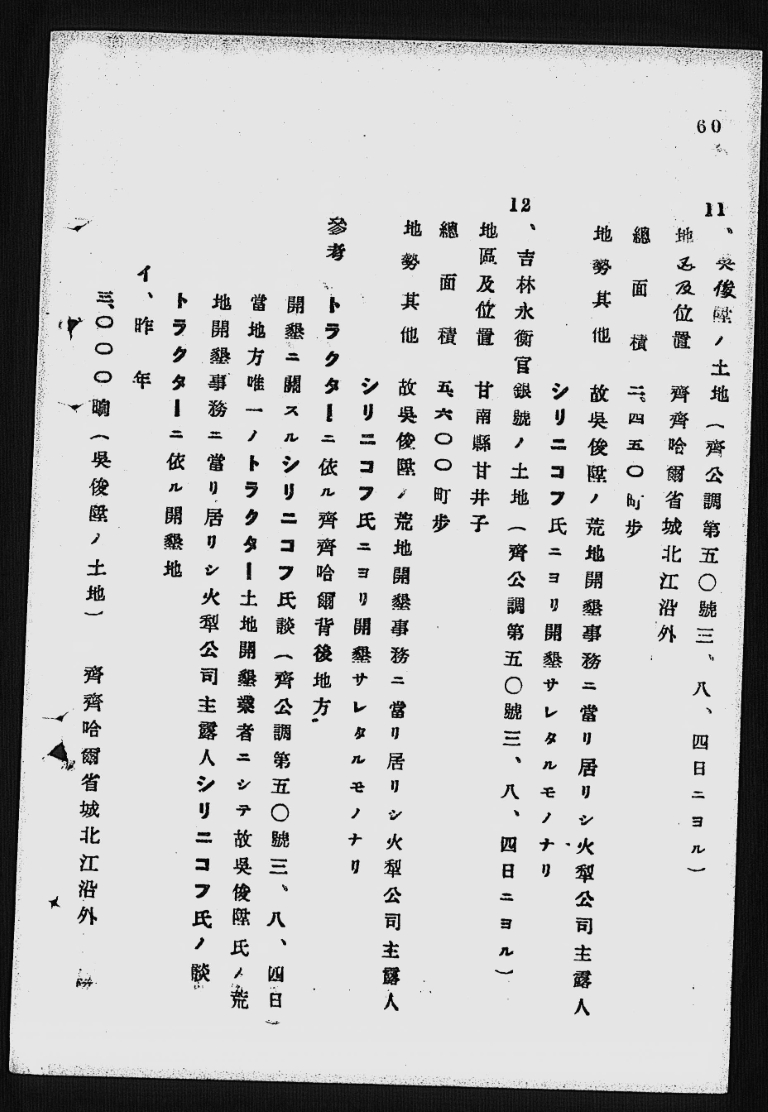 60
11、吳俊陞ノ土地(齊公調第五〇號三、八、四日ニヨル)
地區及位置 齊齊哈爾省城北江沿外
總面積 二、四五〇町步
地勢其他 故吳俊陞ノ荒地開墾事務ニ當リ居リシ火犁公司主露人
シリニコフ氏ニヨリ開墾サレタルモノナリ
12、吉林永衡官銀號ノ土地(齊公調第五〇號三、八、四日ニヨル)
地區及位置 甘南縣甘井子
總面積 五、六〇〇町步
地勢其他 故吳俊陞ノ荒地開墾事務ニ當リ居リシ火犁公司主露人
シリニコフ氏ニヨリ開墾サレタルモノナリ
參考 トラクターニ依ル齊齊哈爾背後地方
開墾ニ關スルシリニコフ氏談(齊公調第五〇號三、八、四日)
當地方唯一ノトラクター土地開墾業者ニシテ故吳俊陞氏ノ荒
地開墾事務ニ當リ居リシ火犁公司主露人シリニコフ氏ノ談
トラクターニ依ル開墾地
イ、昨年
三、〇〇〇晌(吳俊陞ノ土地) 齊齊哈爾省城北江沿外